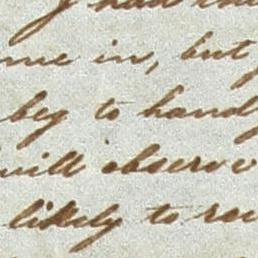 I had
me in, but
beg to hand
will observe
likely to